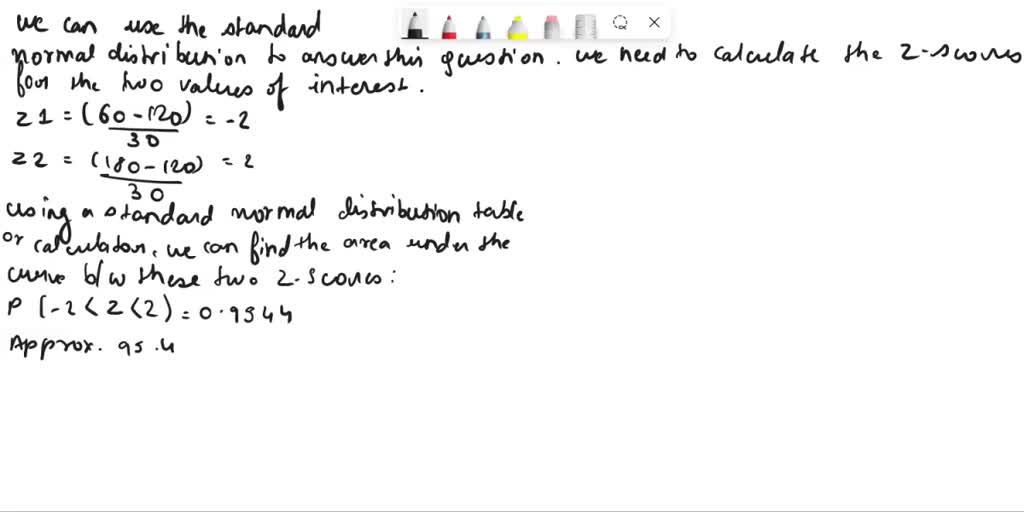 we can use the standard
normal distribution to answer this question. we need to calculate the z-scores
for the two values of interest.
z1 = (60-120) = -2
30
z2 = (180-120) = 2
30
using a standard normal distribution table
or calculator, we can find the area under the
curve b/w these two z-scores:
P (-2 < z < 2) = 0.9544
Approx. 95.4